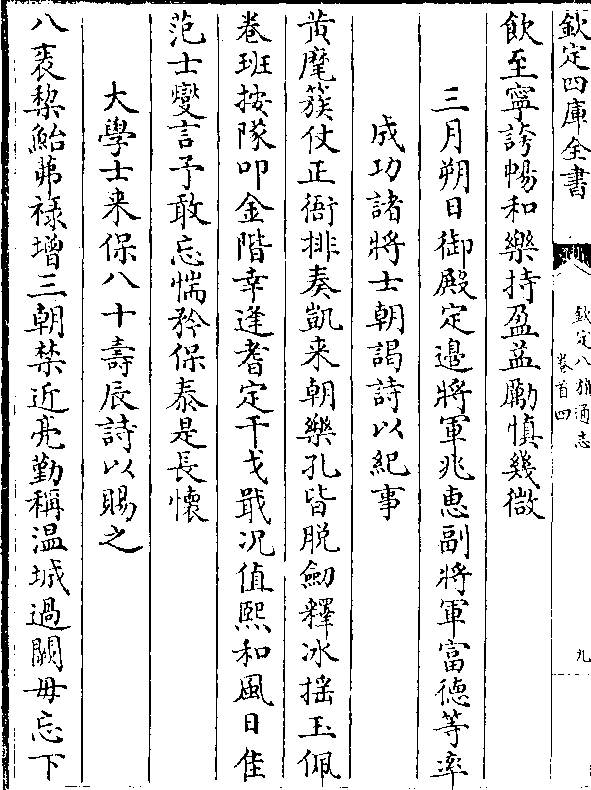 欽定四庫全書
欽定八旗通志
卷首四
九
飲至寧誇暢和樂持盈益勵慎幾微
三月朔日御殿定邉將軍兆恵副將軍富徳等率
成功諸將士朝謁詩以紀事
黄麾簇仗正衙排奏凱来朝樂孔皆脱劒釋冰揺玉佩
巻班按隊叩金階幸逢耆定干戈戢况值熙和風日佳
范士燮言予敢忘惴矜保泰是長懷
大學士来保八十壽辰詩以賜之
八袠黎鮐茀禄增三朝禁近亮勤稱温城過闕毋忘下